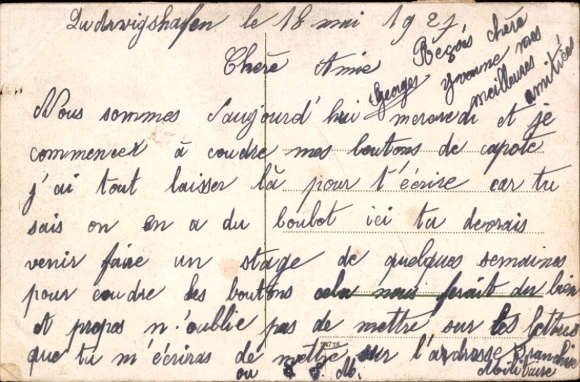 Ludwigshafen le 18 mai 1921
Chère Amie
Reçois chère
Yvonne mes
meilleures amitiés
Georges
Nous sommes aujourd'hui mercredi et je
commencer à coudre mes boutons de capote
j'ai tout laisser là pour t'écrire car tu
sais on en a du boulot ici tu devrais
venir faire un stage de quelques semaines
pour coudre les boutons cela nous ferait du bien
A propos n'oublie pas de mettre sur tes lettres
que tu m'écriras de mettre sur l'adresse Franchise
Militaire
ou F. M.